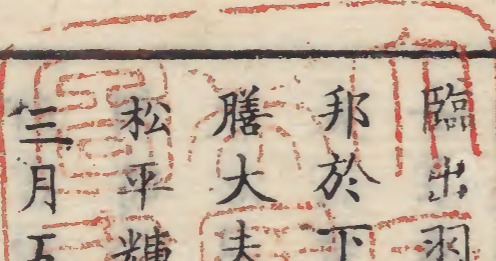 臨出羽
邦於下
膳大夫
松平輝
三月五